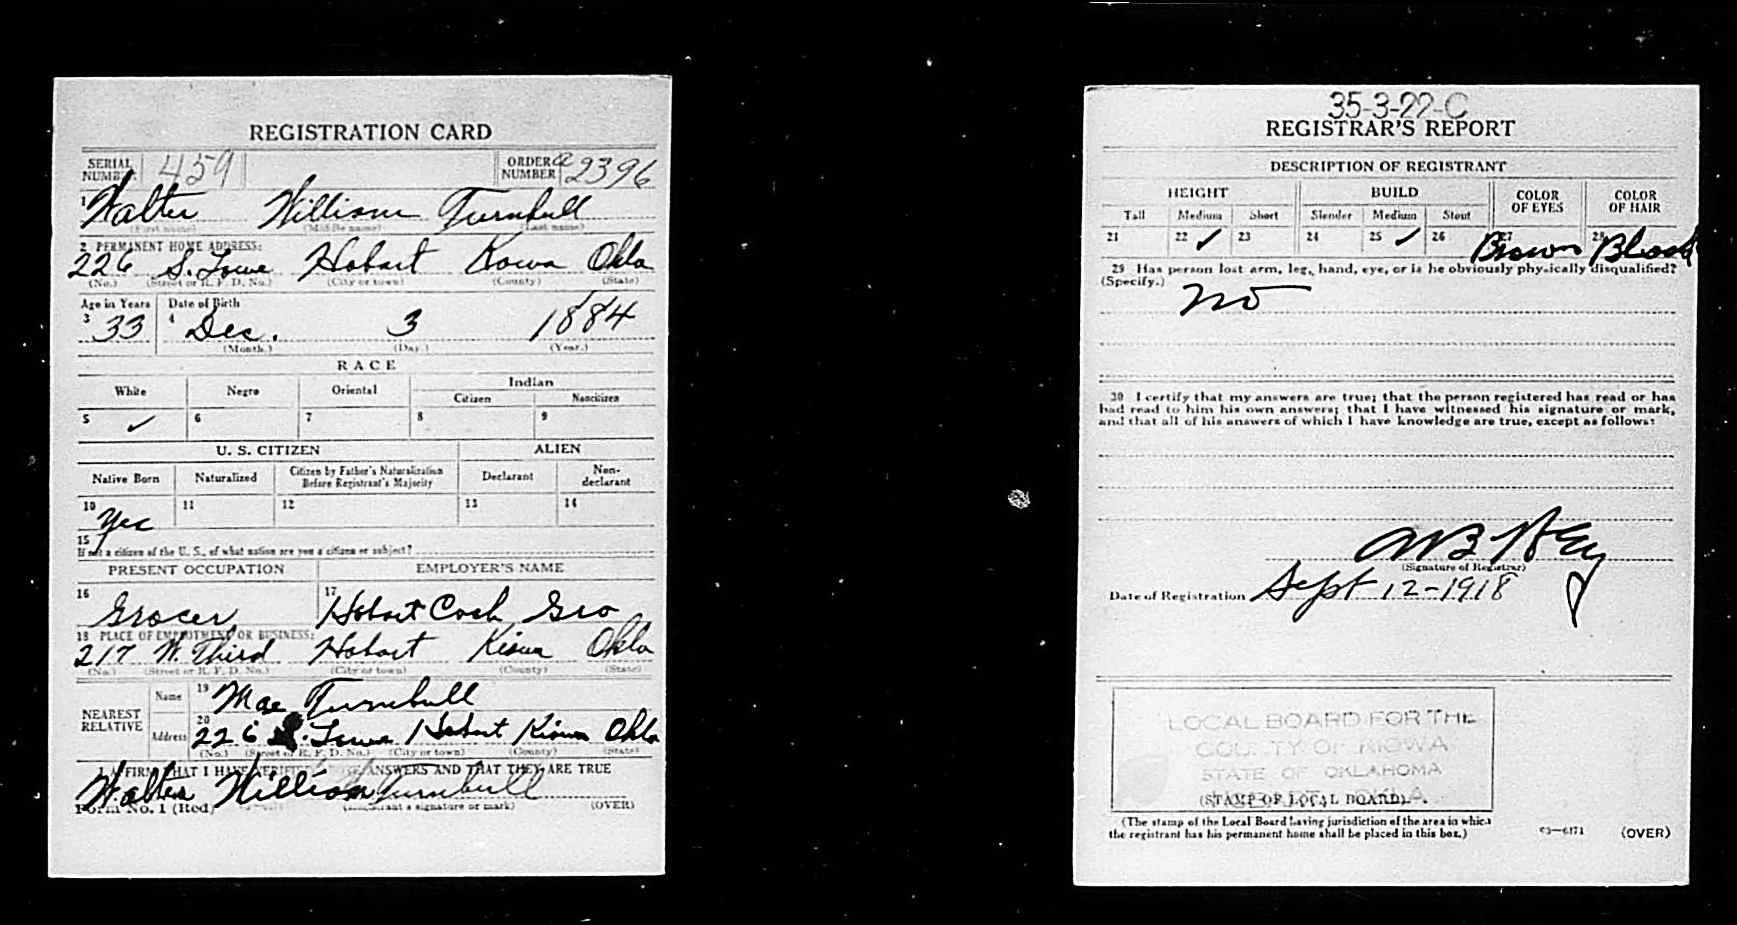 REGISTRATION CARD
SERIAL NUMBER 459 ORDER NUMBER a2396
1 Walter William Turnbull
(First name) (Middle name) (Last name)
2 PERMANENT HOME ADDRESS:
226 S. Lowe Hobart Kiowa Okla
(No.) (Street or R. F. D. No.) (City or town) (County) (State)
Age in Years Date of Birth
3 33 4 Dec. 3 1884
(Month.) (Day.) (Year.)
RACE
White Negro Oriental Indian
Citizen Noncitizen
5 ✓ 6 7 8 9
U. S. CITIZEN ALIEN
Native Born Naturalized Citizen by Father's Naturalization Before Registrant's Majority Declarant Non-declarant
10 Yes 11 12 13 14
15
If not a citizen of the U. S., of what nation are you a citizen or subject?
PRESENT OCCUPATION EMPLOYER'S NAME
16 Grocer 17 Hobart Cash Gro
18 PLACE OF EMPLOYMENT OR BUSINESS:
217 W. Third Hobart Kiowa Okla
(No.) (Street or R. F. D. No.) (City or town) (County) (State)
NEAREST RELATIVE Name 19 Mae Turnbull
Address 20 226 S. Lowe Hobart Kiowa Okla
(No.) (Street or R. F. D. No.) (City or town) (County) (State)
I AFFIRM THAT I HAVE VERIFIED ANSWERS AND THAT THEY ARE TRUE
Walter William Turnbull
Form No. 1 (Red) (Registrant's signature or mark) (OVER)
35-3-22-C
REGISTRAR'S REPORT
DESCRIPTION OF REGISTRANT
HEIGHT BUILD COLOR OF EYES COLOR OF HAIR
Tall Medium Short Slender Medium Stout
21 22 ✓ 23 24 25 ✓ 26 27 Brown 28 Black
29 Has person lost arm, leg, hand, eye, or is he obviously physically disqualified?
(Specify.) no
30 I certify that my answers are true; that the person registered has read or has
had read to him his own answers; that I have witnessed his signature or mark,
and that all of his answers of which I have knowledge are true, except as follows:
(Signature of Registrar)
Date of Registration Sept 12-1918
LOCAL BOARD FOR THE
COUNTY OF KIOWA
STATE OF OKLAHOMA
HOBART, OKLA.
(STAMP OF LOCAL BOARD)
(The stamp of the Local Board having jurisdiction of the area in which
the registrant has his permanent home shall be placed in this box.)
03—6171 (OVER)